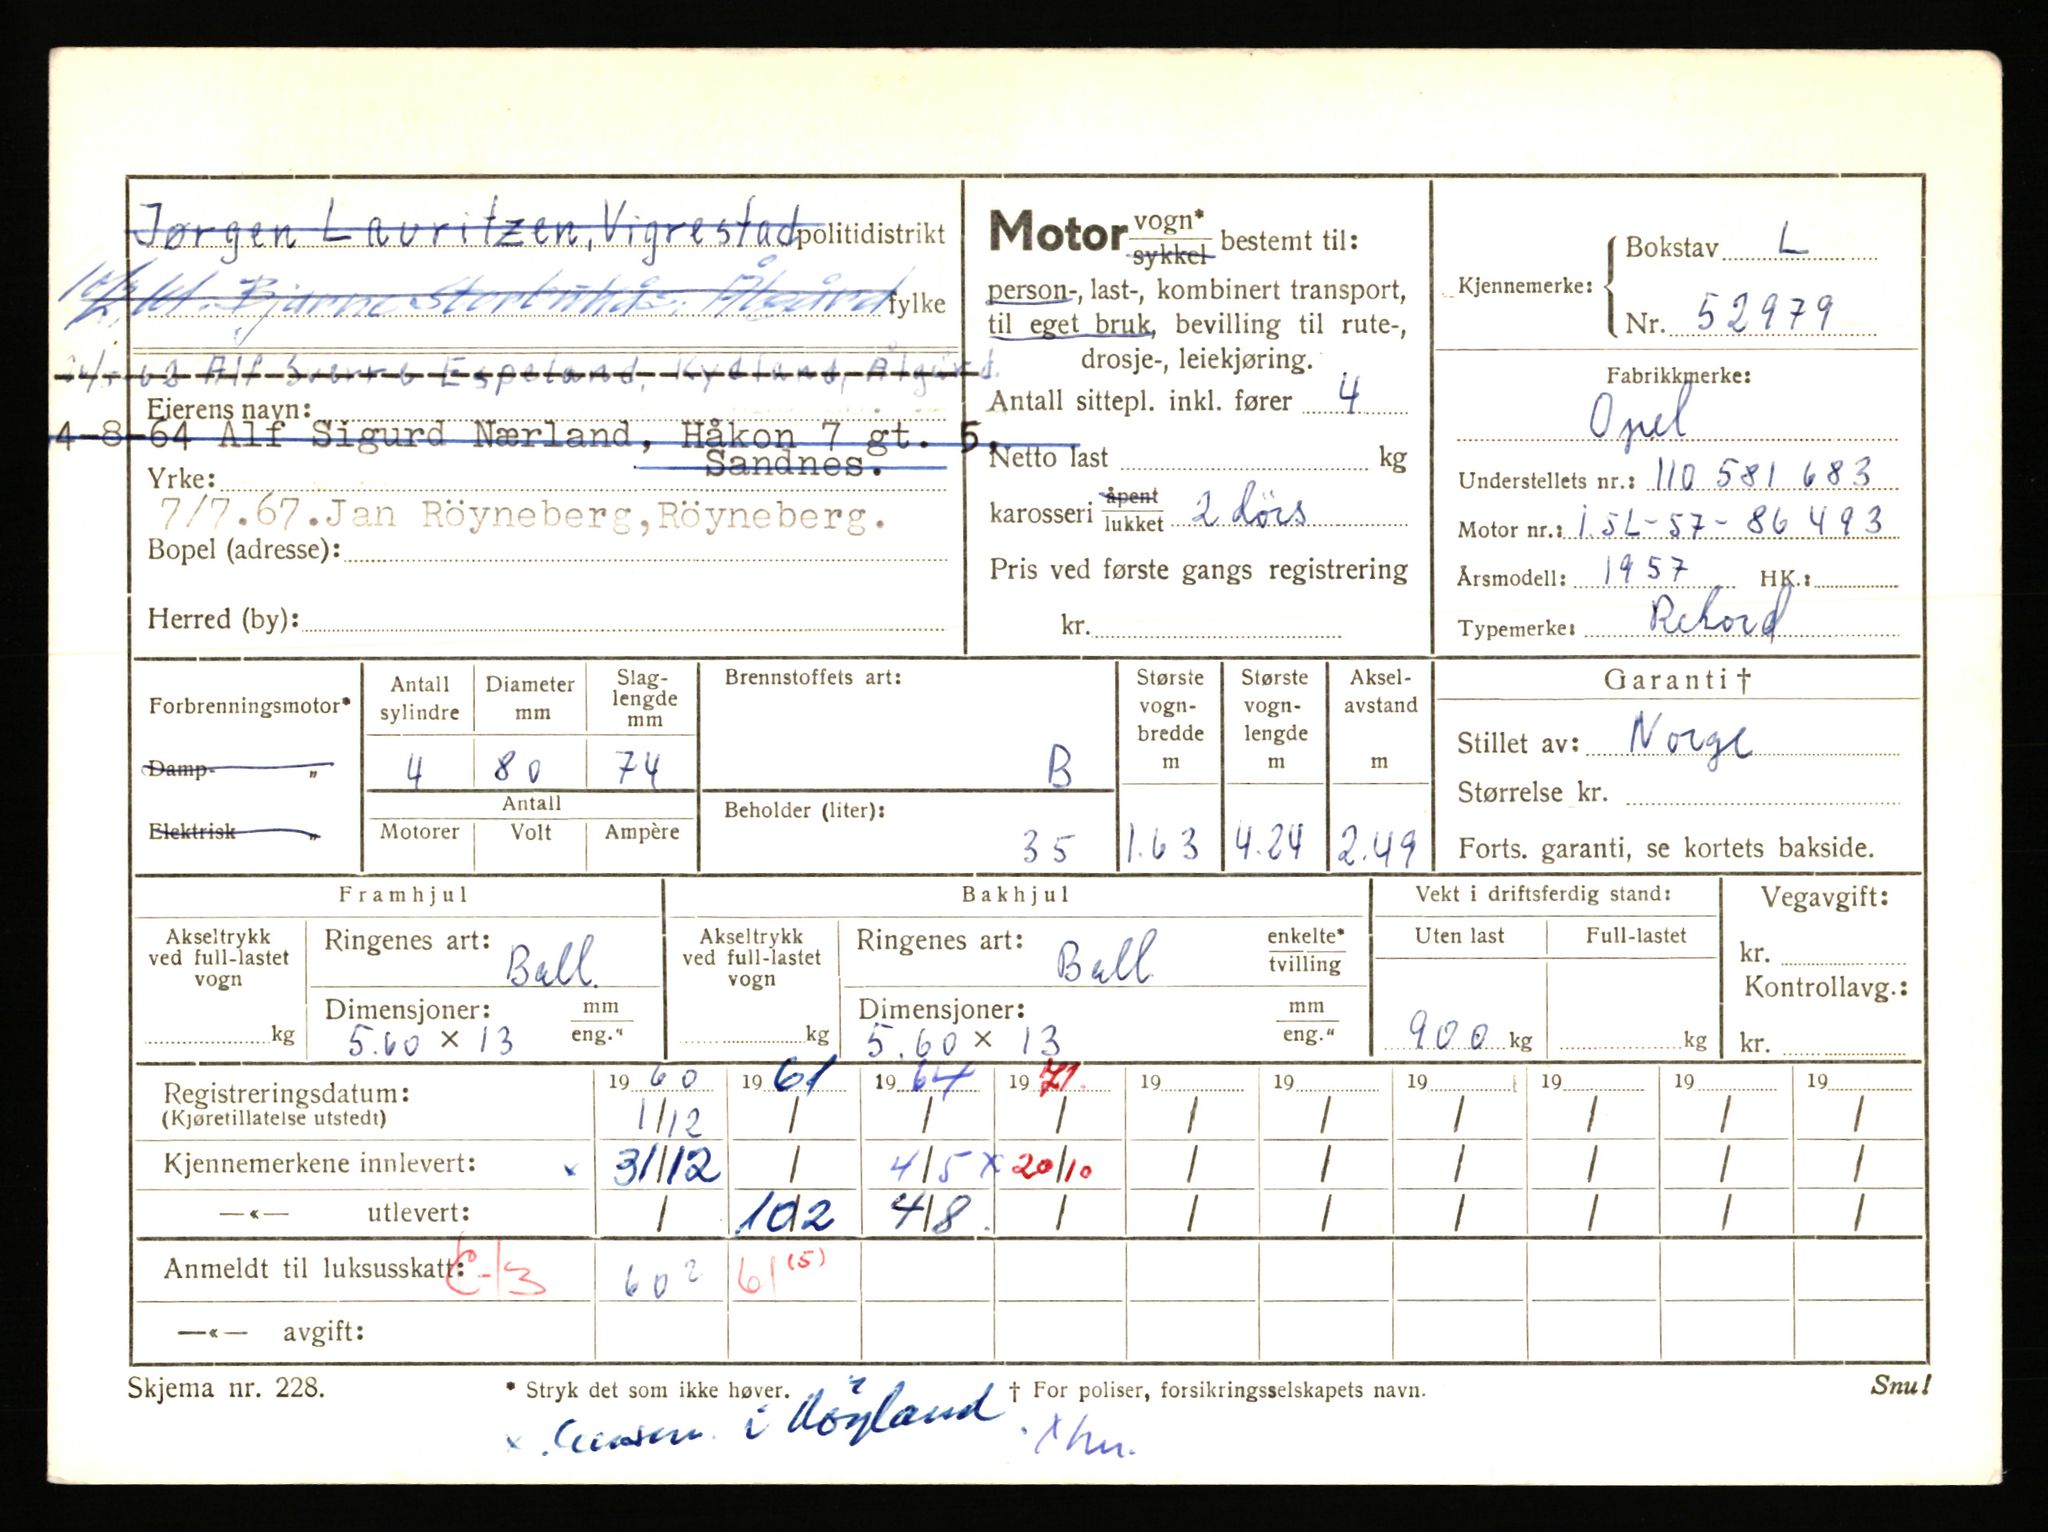 Jørgen Lauritzen, Vigrestad politidistrikt
Bjarne Ålgård fylke
Alf Sverre Espeland, Kydland, Ålgård.
Eierens navn:
4-8-64 Alf Sigurd Nærland, Håkon 7 gt. 5,
Sandnes.
Yrke:
7/7.67.Jan Röyneberg,Röyneberg.
Bopel (adresse):
Herred (by):
Motor vogn* sykkel bestemt til:
person-, last-, kombinert transport,
til eget bruk, bevilling til rute-,
drosje-, leiekjøring.
Antall sittepl. inkl. fører 4
Netto last kg
karosseri åpent lukket 2 dörs
Pris ved første gangs registrering
kr.
Kjennemerke: Bokstav L
Nr. 52979
Fabrikkmerke:
Opel
Understellets nr.: 110 581 683
Motor nr.: 1.5L-57-86493
Årsmodell: 1957 HK.:
Typemerke: Rekord
Forbrenningsmotor*
Damp- „
Elektrisk „
Antall sylindre Diameter mm Slag-lengde mm
4 80 74
Antall
Motorer Volt Ampère
Brennstoffets art:
B
Beholder (liter):
35
Største vogn-bredde m
1.63
Største vogn-lengde m
4.24
Aksel-avstand m
2.49
Garanti †
Stillet av: Norge
Størrelse kr.
Forts. garanti, se kortets bakside.
Framhjul
Akseltrykk ved full-lastet vogn
kg
Ringenes art: Ball.
Dimensjoner: mm
5.60 × 13 eng."
Bakhjul
Akseltrykk ved full-lastet vogn
kg
Ringenes art: Ball enkelte* tvilling
Dimensjoner: mm
5.60 × 13 eng."
Vekt i driftsferdig stand:
Uten last Full-lastet
900 kg kg
Vegavgift:
kr.
Kontrollavg.:
kr.
Registreringsdatum: 19 60 19 61 19 64 19 71. 19 19 19 19 19 19
(Kjøretillatelse utstedt) 1/12 / / / / / / / / /
Kjennemerkene innlevert: x 31/12 / 4/5 x 20/10 / / / / / /
—«— utlevert: / 10/2 4/8. / / / / / / /
Anmeldt til luksusskatt: 60 2 61 (5)
—«— avgift:
Skjema nr. 228. * Stryk det som ikke høver. † For poliser, forsikringsselskapets navn. Snu!
x i Höyland